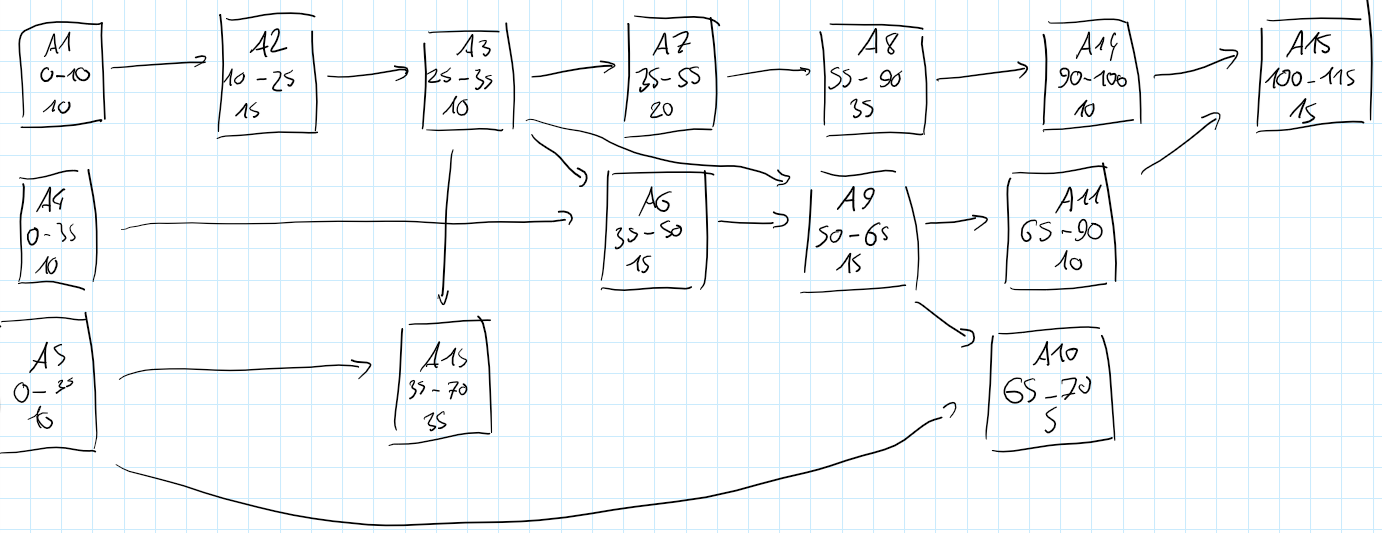 A1
0-10
10
A2
10-25
15
A3
25-35
10
A7
35-55
20
A8
55-90
35
A14
90-100
10
A15
100-115
15
A4
0-35
10
A6
35-50
15
A9
50-65
15
A11
65-90
10
A5
0-35
10
A15
35-70
35
A10
65-70
5